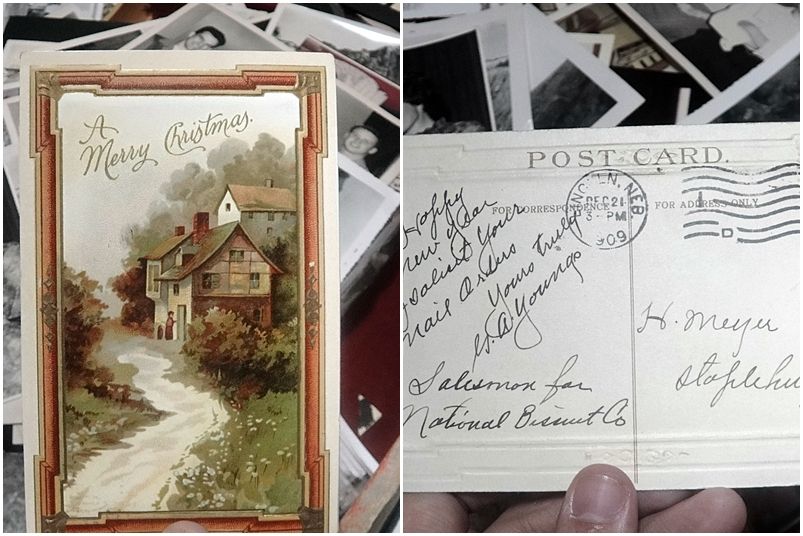 A
Merry Christmas.
POST CARD.
FOR CORRESPONDENCE
FOR ADDRESS ONLY
LINCOLN, NEB
DEC 21
3 - PM
1909
D
Happy
new year
solicit your
mail orders
yours truly
Youngs
Salesman for
National Biscuit Co
H. Meyer
Staplehu